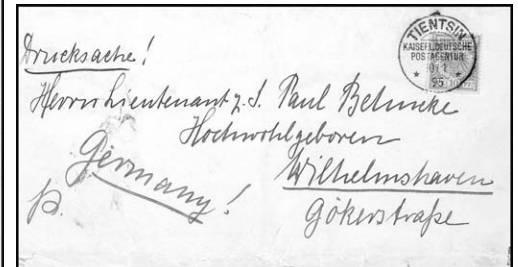 TIENTSIN
KAISERL. DEUTSCHE
POSTAGENTUR
95
Drucksache!
Herrn Lieutenant z. S. Paul Behncke
Hochwohlgeboren
Wilhelmshaven
Gökerstraße
Germany!